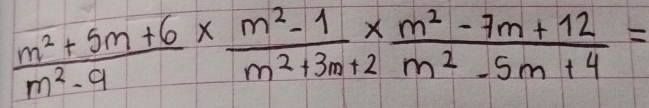 m² + 5m + 6 / m² - 9 × m² - 1 / m² + 3m + 2 × m² - 7m + 12 / m² - 5m + 4 =